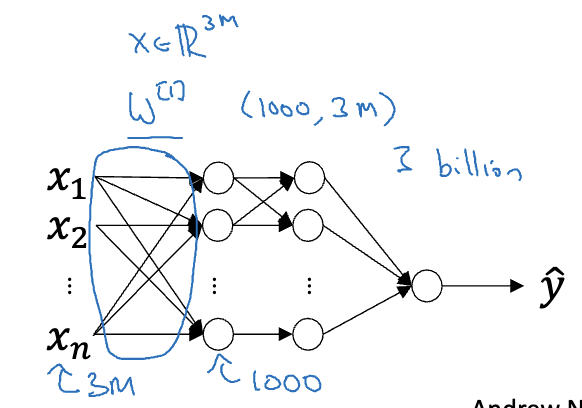 x ∈ ℝ^3M
W^[1] (1000, 3M)
3 billion
x₁
x₂
⋮ ⋮ ⋮
ŷ
xₙ
3M 1000
Andrew N